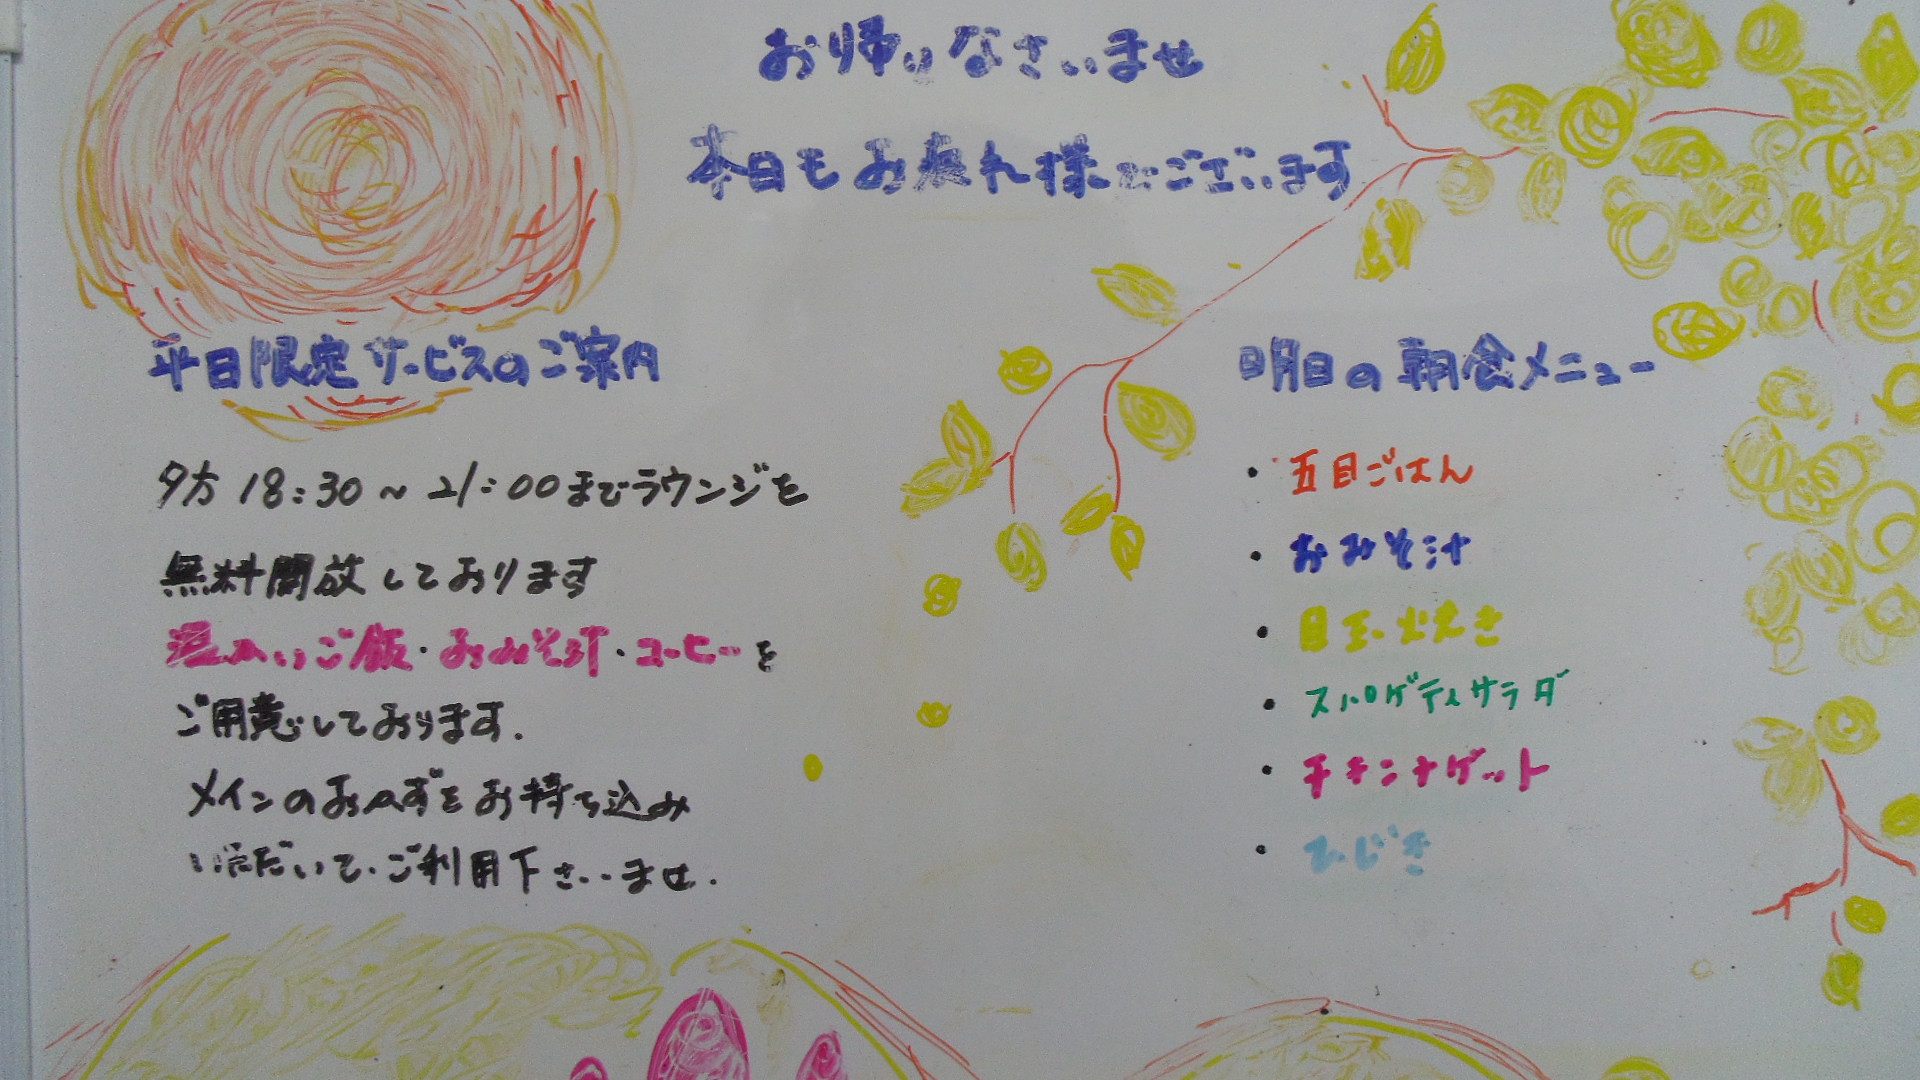 お帰りなさいませ
本日もお疲れ様でございます
平日限定サービスのご案内
夕方 18:30～21:00までラウンジを
無料開放しております
温かいご飯・おみそ汁・コーヒーを
ご用意しております.
メインのおかずをお持ち込み
いただいて、ご利用下さいませ.
明日の朝食メニュー
・五目ごはん
・おみそ汁
・目玉焼き
・スパゲティサラダ
・チキンナゲット
・ひじき